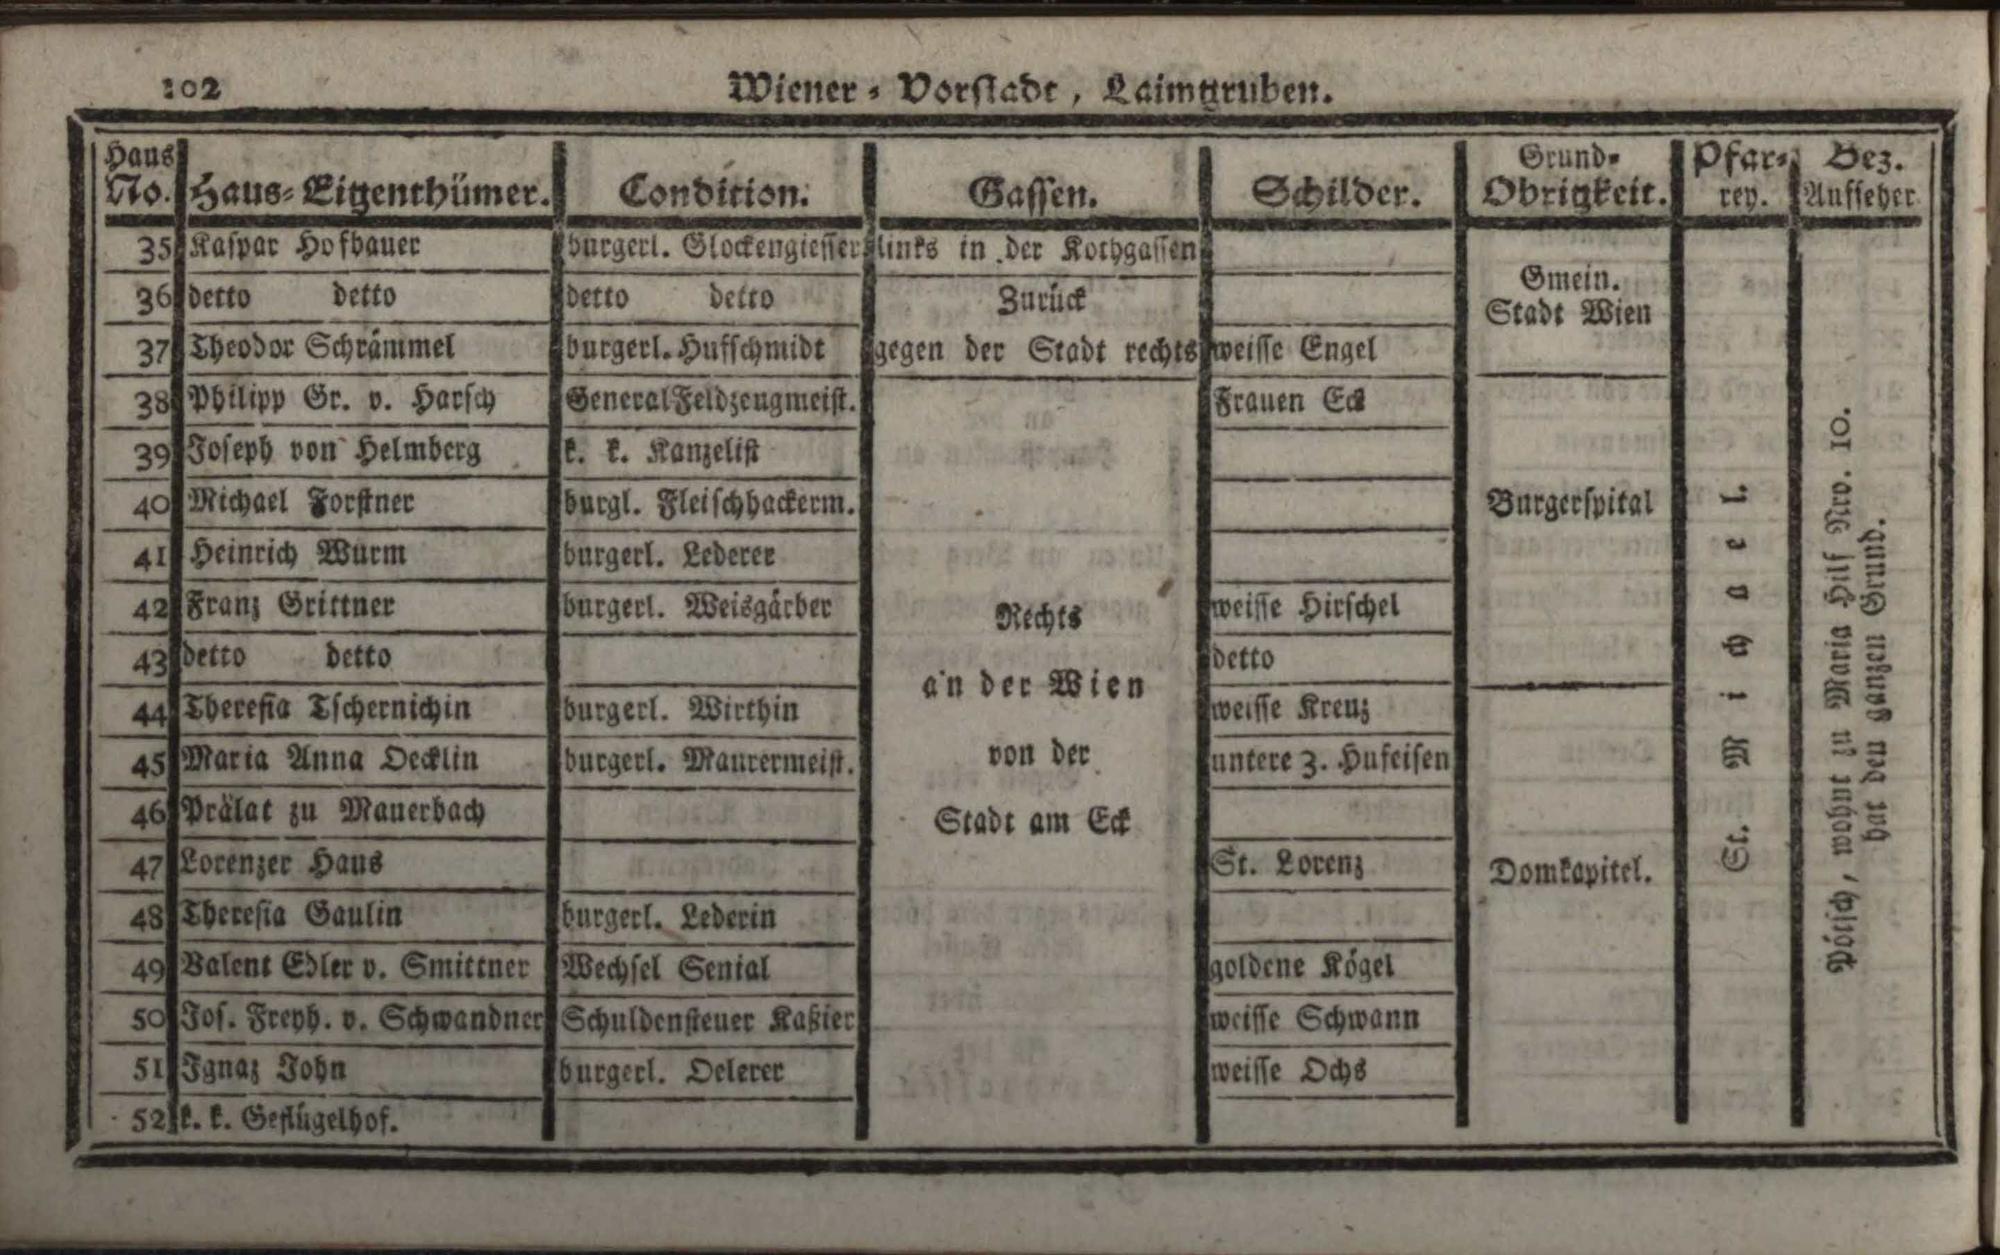 102
Wiener-Vorstadt, Laimgruben.
Haus No. Haus-Eigenthümer. Condition. Gassen. Schilder. Grund-Obrigkeit. Pfarrey. Bez. Aufseher
35 Kaspar Hofbauer burgerl. Glockengiesser links in der Kothgassen
Gmein.
36 detto detto detto detto Zurück
Stadt Wien
37 Theodor Schrämmel burgerl. Hufschmidt gegen der Stadt rechts weisse Engel
38 Philipp Gr. v. Harsch General Feldzeugmeist. Frauen Eck
39 Joseph von Helmberg k. k. Kanzelist
40 Michael Forstner burgl. Fleischhackerm. Burgerspital
41 Heinrich Wurm burgerl. Lederer
42 Franz Grittner burgerl. Weisgärber Rechts weisse Hirschel
43 detto detto detto
an der Wien
44 Theresia Tschernichin burgerl. Wirthin weisse Kreuz
45 Maria Anna Oecklin burgerl. Maurermeist. von der untere 3. Hufeisen
46 Prälat zu Mauerbach Stadt am Eck
47 Lorenzer Haus St. Lorenz Domkapitel.
48 Theresia Gaulin burgerl. Lederin
49 Valent Edler v. Smittner Wechsel Sensal goldene Kögel
50 Jos. Freyh. v. Schwandner Schuldensteuer Kaßier weisse Schwann
51 Ignaz John burgerl. Oelerer weisse Ochs
52 k. k. Geflügelhof.
St. Michael.
Pötsch, wohnt zu Maria Hilf Nro. 10.
hat den ganzen Grund.